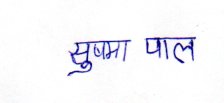 सुषमा पाल